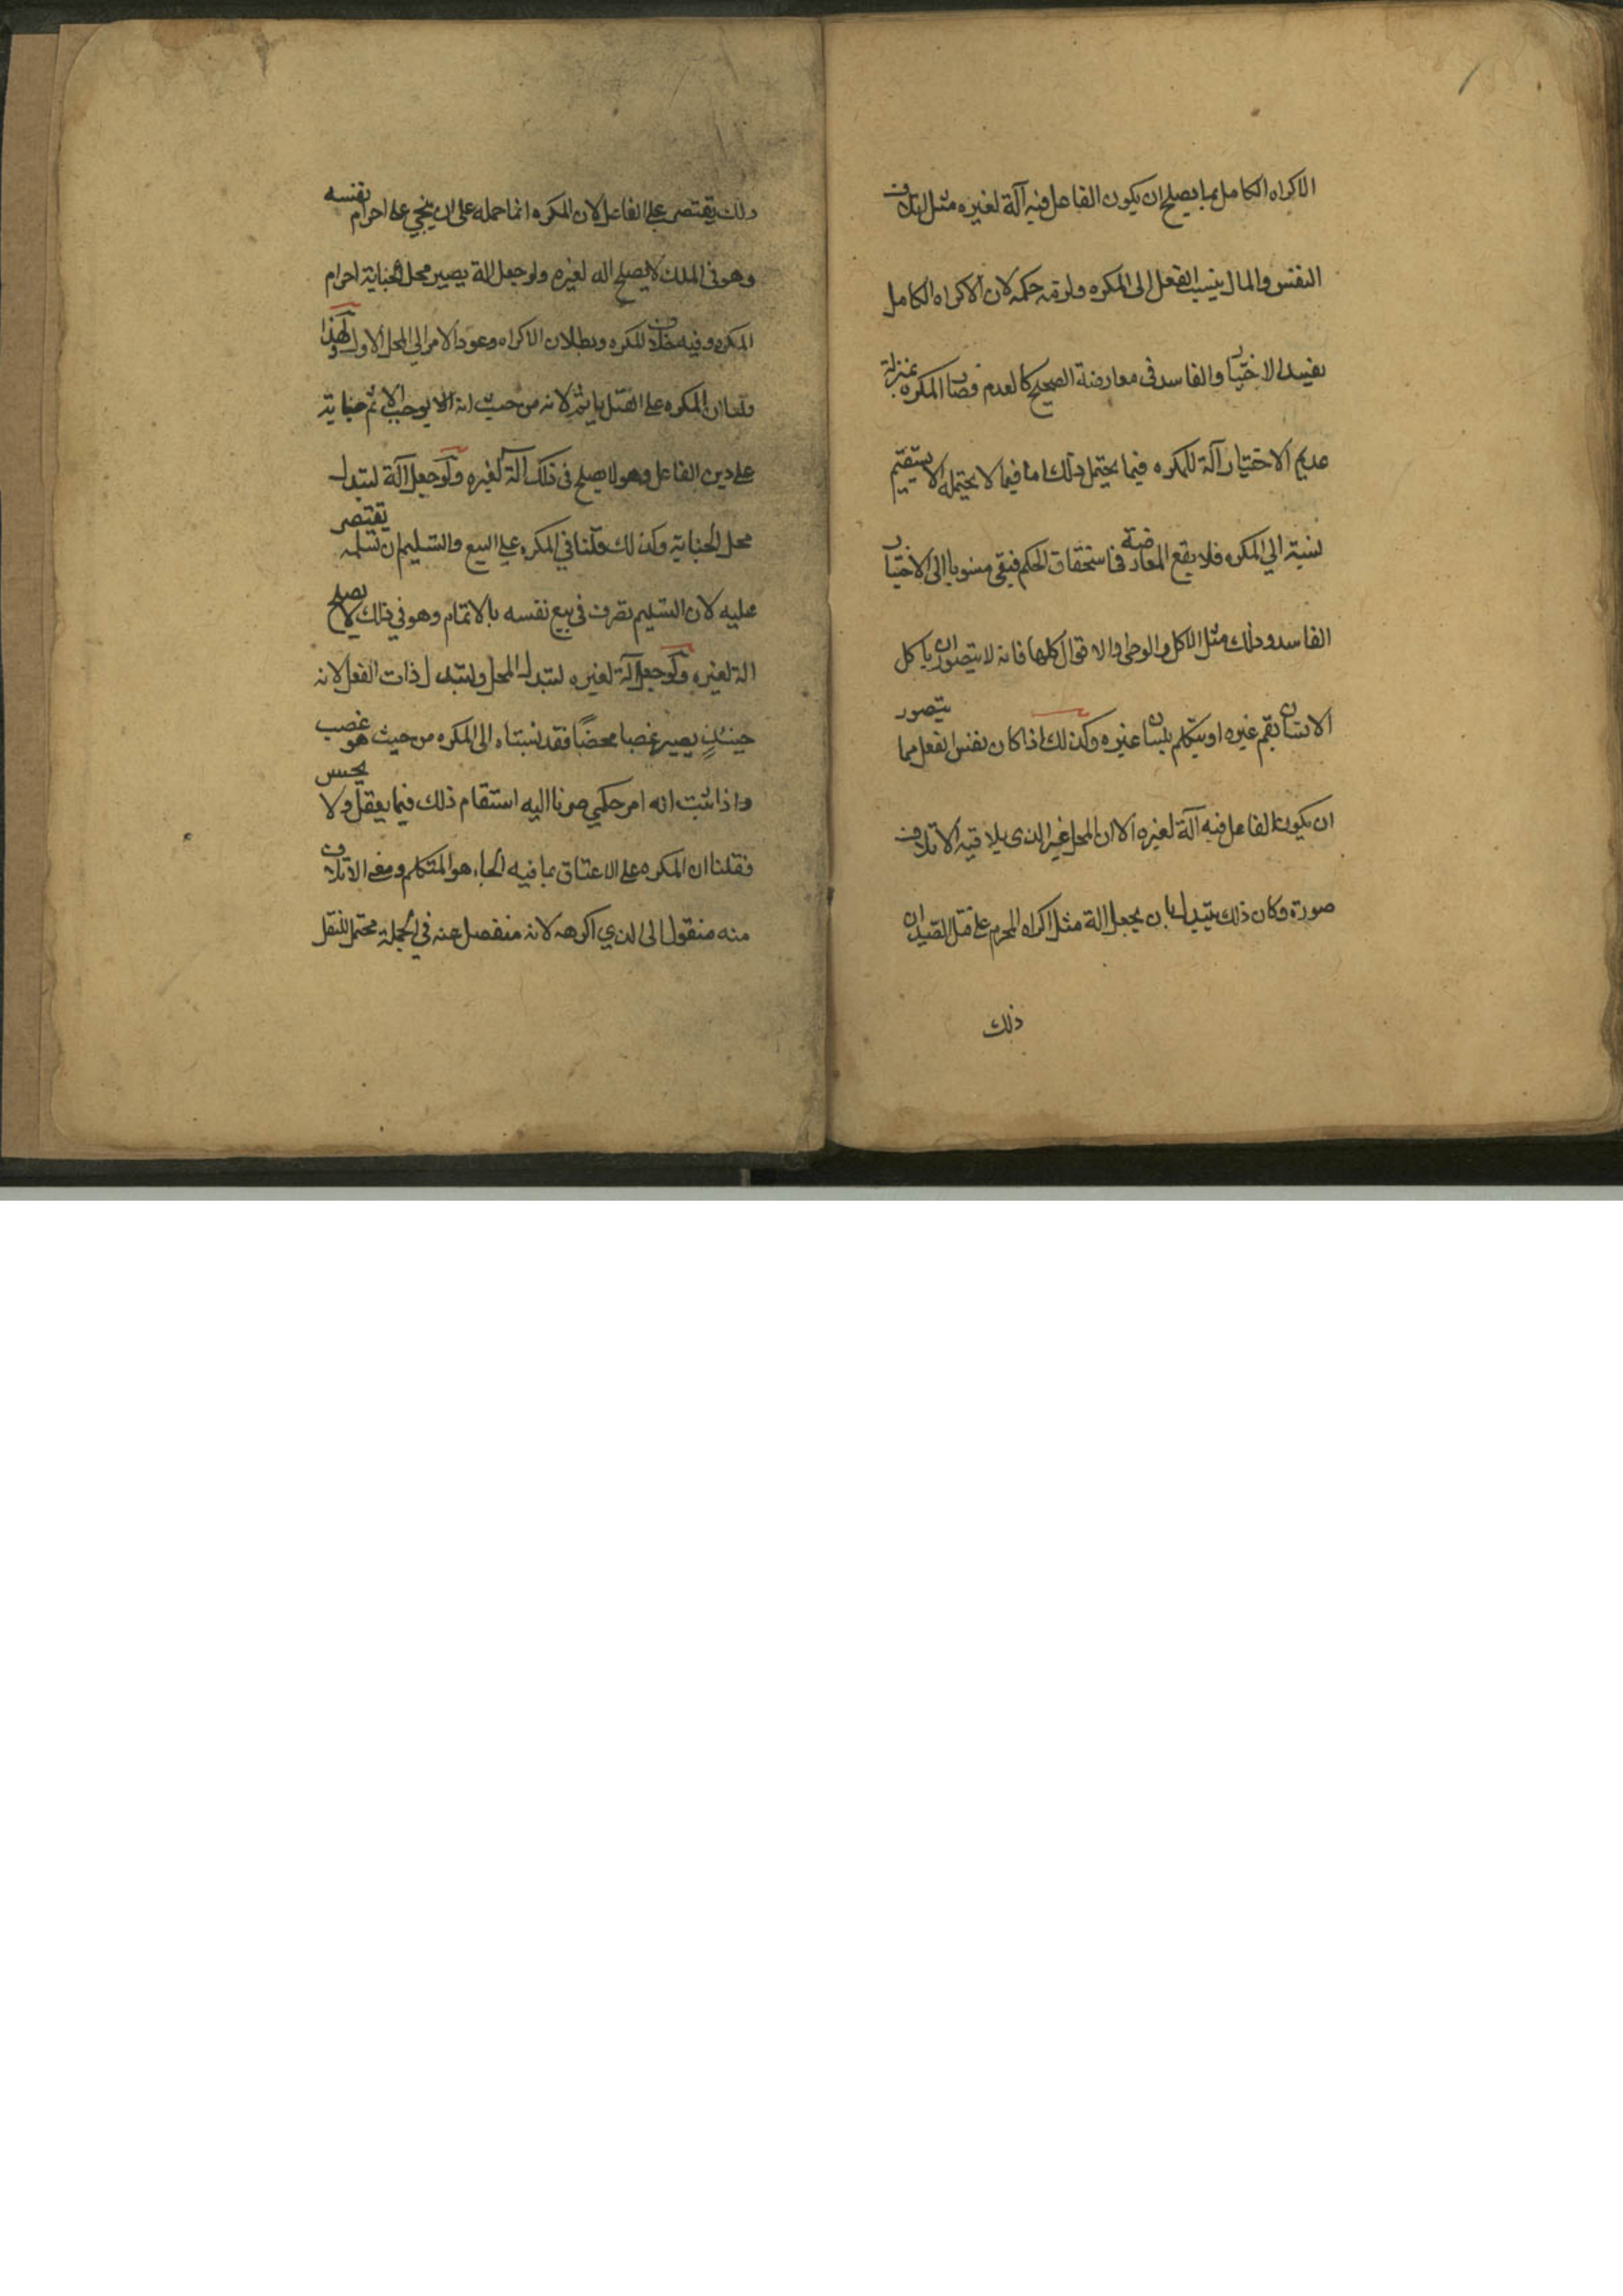 الاكراه الكامل بما يصلح ان يكون الفاعل فيه آلة لغيره مثل اتلاف
النفس والمال ينسب الفعل الى المكره ولزمه حكمه لان الاكراه الكامل
يفسد الاختيار والفاسد فى معارضة الصحيح كالعدم فصار المكره بمنزلة
عديم الاختيار آلة للمكره فيما يحتمل ذلك اما فيما لا يحتمله لا يستقيم
نسبته الي المكره فلا يقع المعارضة فى استحقاق الحكم فبقى منسوبا الى الاختيار
الفاسد وذلك مثل الاكل والوطى والاقوال كلها فانه لا يتصور ان ياكل
الانسان بفم غيره او يتكلم بلسان غيره وكذلك اذا كان نفس الفعل مما يتصور
ان يكون الفاعل فيه آلة لغيره الا ان المحل غير الذى يلاقيه الاتلاف
صورة وكان ذلك يتبدل بان يجعل الة مثل اكراه المحرم على قتل الصيد ان
ذلك
ذلك يقتصر على الفاعل لان المكره انما حمله على ان يجني على احرام نفسه
وهو فى الملك لا يصلح اله لغيره ولو جعل الة يصير محل الجناية احرام
المكره وفيه خلاف للمكره وبطلان الاكراه وعود الامر الي المحل الاول ولهذا
قلنا ان المكره على القتل ياثم لانه من حيث انه لا يوجب الاثم جناية
على دين الفاعل وهو لا يصلح فى ذلك آلة لغيره ولو جعل آلة لتبدل
محل الجناية وكذلك قلنا في المكره على البيع والتسليم ان تسلمه يقتصر
عليه لان التسليم تصرف فى بيع نفسه بالاتمام وهو في ذلك لا يصلح
الة لغيره ولو جعل آلة لغيره لتبدل المحل ولتبدل ذات الفعل لانه
حينئذٍ يصير غصبا محضًا فقد نسبناه الى المكره من حيث هو غصب
واذا ثبت انه امر حكمي صرنا اليه استقام ذلك فيما يعقل ولا يحس
فقلنا ان المكره على الاعتاق بما فيه الجاء هو المتكلم ومعنى الاتلاف
منه منقول الى الذي اكرهه لانه منفصل عنه في الجملة محتمل للنقل